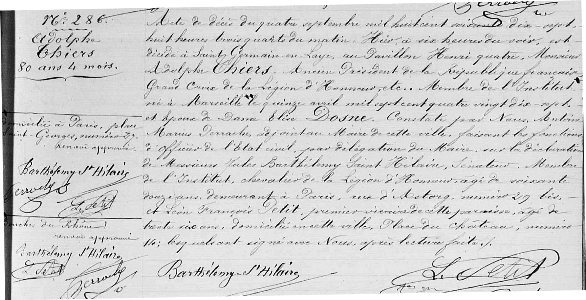 N° 286
Adolphe
Thiers
80 ans 4 mois.
domicilié à Paris, place
Saint-Georges,
renvoi approuvé
Barthélemy St Hilaire
L. Petit
Bouches du Rhône
renvoi approuvé
Barthélemy St Hilaire
L. Petit
Acte de décès du quatre septembre mil huit cent soixante dix sept,
huit heures trois quarts du matin. Hier, à six heures du soir, est
décédé à Saint Germain en Laye, au Pavillon Henri quatre, Monsieur
Adolphe Thiers, Ancien Président de la République française,
Grand Croix de la Légion d'Honneur, etc.. Membre de l'Institut
né à Marseille le quinze avril mil sept cent quatre vingt dix sept,
et époux de Dame Elise Dosne. Constaté par Nous, Antoine
Marius adjoint au Maire de cette ville, faisant les fonctions
d'officier de l'Etat civil, par délégation du Maire, sur la déclaration
de Messieurs Jules Barthélemy Saint Hilaire, Sénateur, Membre
de l'Institut, chevalier de la Légion d'Honneur, âgé de soixante
douze ans, demeurant à Paris, rue d'Astorg, numéro 29 bis, -
et Léon François Petit, premier vicaire de cette paroisse, âgé de
trente six ans, domicilié en cette ville, Place du Château, numéro
14; lesquels ont signé avec Nous, après lecture faite.
Barthélemy St Hilaire
L. Petit